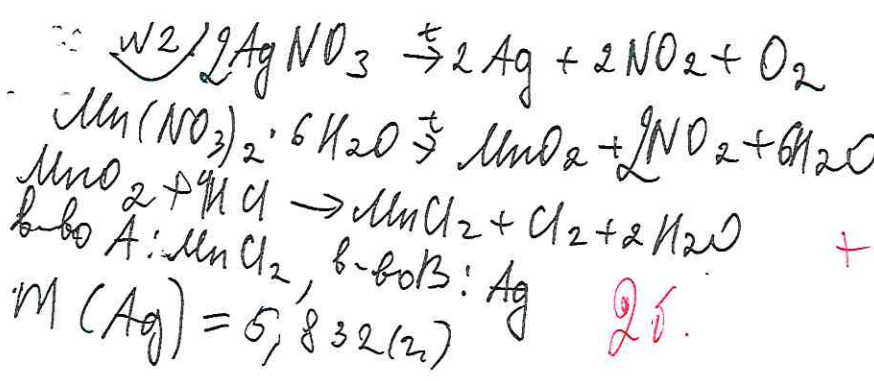 №2) 2AgNO₃ →ᵗ 2Ag + 2NO₂ + O₂
Mn(NO₃)₂ · 6H₂O →ᵗ MnO₂ + 2NO₂ + 6H₂O
MnO₂ + 4HCl → MnCl₂ + Cl₂ + 2H₂O
в-во А: MnCl₂, в-во В: Ag +
m(Ag) = 5,832 (г) 2б.